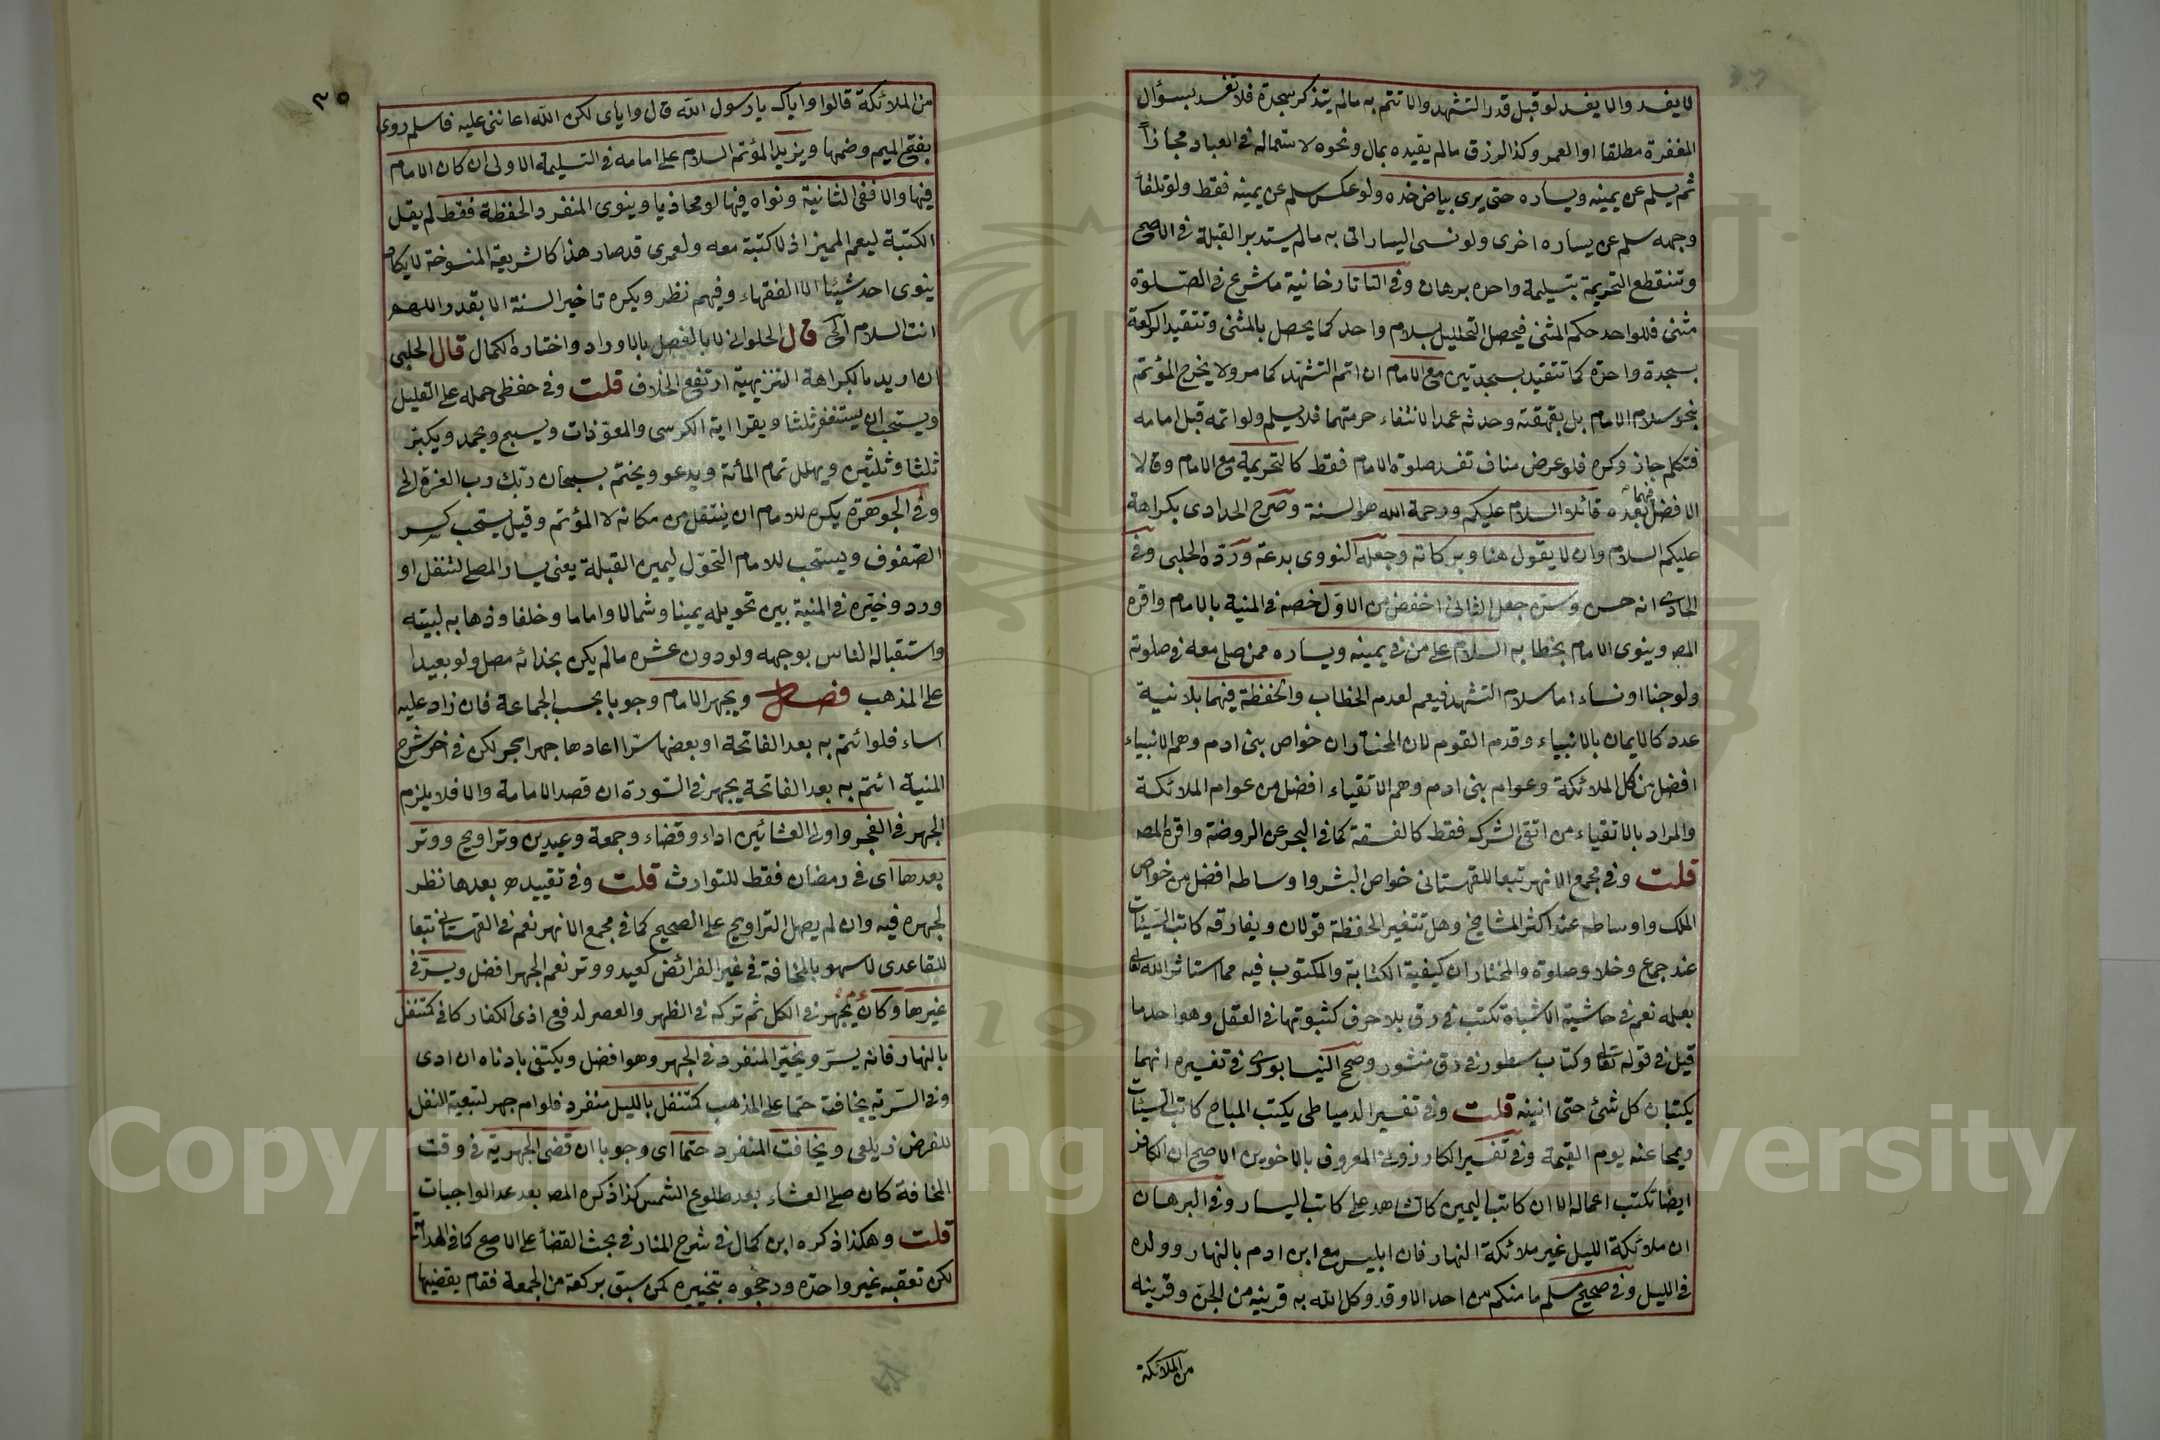 لا يفسد والا يفسد لو قبل قدر التشهد والا تتم به مالم يتذكر سجدة فلا تفسد بسؤال
المغفرة مطلقا او العمر وكذا الرزق مالم يقيده بمال ونحوه لاستعماله في العباد مجازاً
ثم يسلم عن يمينه ويساره حتى يرى بياض خده ولو عكس سلم عن يمينه فقط ولو تلقأ
وجهه سلم عن يساره اخرى ولو نسى اليسار اتى به مالم يستدبر القبلة في الاصح
وتنقطع التحريمة بتسليمة واحدة برهان وفي التاتارخانية ما شرع في الصلوة
مثنى فللواحد حكم المثنى فيحصل التحليل بسلام واحد كما يحصل بالمثنى وتتقيد الركعة
بسجدة واحدة كما تتقيد بسجدتين مع الامام ان اتم التشهد كما مر ولا يخرج المؤتم
بنحو سلام الامام بل بقهقهته وحدثه عمدا لانتفاء حرمتهما فلا يسلم ولو اتمه قبل امامه
فتكلم جاز وكره فلو عرض مناف تفسد صلوة الامام فقط كالتحريمة مع الامام وقالا
الافضل فيهما بعده قائلا السلام عليكم ورحمة الله هو السنة وصرح الحدادى بكراهة
عليكم السلام وان لا يقول هنا وبركاته وجعله النووى بدعة ورده الحلبى وفي
الحاوى انه حسن وسن جعل الثانى اخفض من الاول خصه في المنية بالامام واقره
المص وينوى الامام بخطابه السلام على من في يمينه ويساره ممن صلى معه في صلوته
ولو جنا او نساء اما سلام التشهد فيعم لعدم الخطاب والحفظة فيهما بلا نية
عدد كالايمان بالانبياء وقدم القوم لان المختار ان خواص بنى ادم وهم الانبياء
افضل من كل الملائكة وعوام بنى ادم وهم الاتقياء افضل من عوام الملائكة
والمراد بالاتقياء من اتقى الشرك فقط كالفسقة كما في البحر عن الروضة واقره المص
قلت وفي مجمع الانهر تبعا للقهستانى خواص البشر واوساطه افضل من خواص
الملك واوساطه عند اكثر المشايخ وهل تتغير الحفظة قولان ويفارقه كاتب السيئات
عند جماع وخلا وصلوة والمختار ان كيفية الكتابة والمكتوب فيه مما استاثر الله تعالى
بعلمه نعم في حاشية الاشباه تكتب في رق بلا حرف كثبوتها في العقل وهو احد ما
قيل في قوله تعالى وكتاب مسطور في رق منشور وصحح النيسابورى في تفسيره انهما
يكتبان كل شئ حتى انينه قلت وفي تفسير الدمياطى يكتب المباح كاتب السيئات
ويمحا عنه يوم القيمة وفي تفسير الكازرونى المعروف بالاخوين الاصح ان الكافر
ايضا تكتب اعماله الا ان كاتب اليمين كالشاهد على كاتب اليسار وفي البرهان
ان ملائكة الليل غير ملائكة النهار فان ابليس مع ابن ادم بالنهار وولده
في الليل وفي صحيح مسلم ما منكم من احد الا وقد وكل الله به قرينه من الجن وقرينه
من الملائكة
٣٥
من الملائكة قالوا واياك يا رسول الله قال واياى لكن الله اعاننى عليه فاسلم روى
بفتح الميم وضمها ويزيد المؤتم السلام على امامه في التسليمة الاولى ان كان الامام
فيها والا ففي الثانية ونواه فيهما لو محاذيا وينوى المنفرد الحفظة فقط لم يقل
الكتبة ليعم المميز اذ لا كتبة معه ولعمرى قد صار هذا كالشريعة المنسوخة لا يكاد
ينوى احد شيئا الا الفقهاء وفيهم نظر ويكره تاخير السنة الا بقدر اللهم
انت السلام الخ قال الحلوانى لا باس بالفصل بالاوراد واختاره الكمال قال الحلبى
ان اريد بالكراهة التنزيهية ارتفع الخلاف قلت وفي حفظى حمله على القليل
ويستحب ان يستغفر ثلثا ويقرا اية الكرسى والمعوذات ويسبح ويحمد ويكبر
ثلثا وثلثين ويهلل تمام المأئة ويدعو ويختم بسبحان ربك رب العزة الخ
وفي الجوهرة يكره للامام ان يتنفل في مكانه لا المؤتم وقيل يستحب كسر
الصفوف ويستحب للامام التحول ليمين القبلة يعنى يسار المصلى لتنفل او
ورد وخيره في المنية بين تحويله يمينا وشمالا واماما وخلفا وذهابه لبيته
واستقباله الناس بوجهه ولو دون عشرة مالم يكن بحذائه مصل ولو بعيدا
على المذهب فصل ويجهر الامام وجوبا بحسب الجماعة فان زاد عليه
اساء فلو ائتم به بعد الفاتحة او بعضها سرا اعادها جهرا بحر لكن في اخر شرح
المنية ائتم به بعد الفاتحة يجهر في السورة ان قصد الامامة والا فلا يلزم
الجهر في الفجر واولى العشائين اداء وقضاء وجمعة وعيدين وتراويح ووتر
بعدها اى في رمضان فقط للتوارث قلت وفي تقييده بعدها نظر
لجهره فيه وان لم يصل التراويح على الصحيح كما في مجمع الانهر نعم في القهستانى تبعا
للقاعدى لا سهو بالمخافة في غير الفرائض كعيد ووتر نعم الجهر افضل ويسر في
غيرها وكان يجهر في الكل ثم تركه في الظهر والعصر لدفع اذى الكفار كافي كمتنفل
بالنهار فانه يسر ويخير المنفرد في الجهر وهو افضل ويكتفى بادناه ان ادى
وفي السرية يخافت حتما على المذهب كمتنفل بالليل منفرد فلو ام جهر لتبعية النفل
للفرض زيلعى ويخافت المنفرد حتما اى وجوبا ان قضى الجهرية في وقت
المخافة كان صلى العشاء بعد طلوع الشمس كذا ذكره المص بعد عد الواجبات
قلت وهكذا ذكره ابن كمال في شرح المنار في بحث القضأ على الاصح كما في الهداية
لكن تعقبه غير واحد ورجحوه بتخييره كمن سبق بركعة من الجمعة فقام يقضيها
Copyright © King Saud University